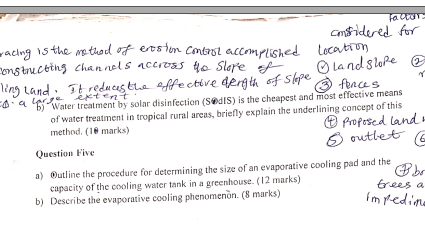 factors
considered for
racing is the method of erosion control accomplished location
constructing channels accross the slope of ① land slope ②
ling land. It reduces the effective length of slope ③ fences
a large extent.
b) Water treatment by solar disinfection (SODIS) is the cheapest and most effective means
of water treatment in tropical rural areas, briefly explain the underlining concept of this
method. (10 marks)
④ proposed land
⑤ outlet ⑥
Question Five
a) Outline the procedure for determining the size of an evaporative cooling pad and the
capacity of the cooling water tank in a greenhouse. (12 marks)
b) Describe the evaporative cooling phenomenon. (8 marks)
trees a
impedim